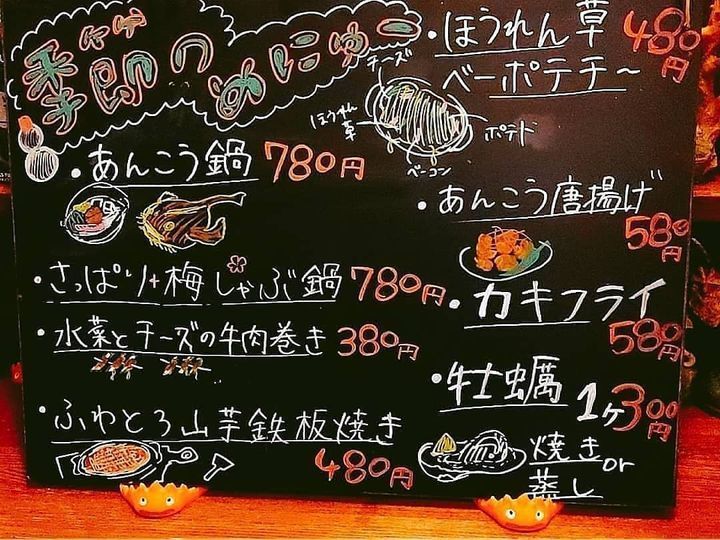 季節のめにゅー
・あんこう鍋 780円
・さっぱり梅しゃぶ鍋 780円
・水菜とチーズの牛肉巻き 380円
・ふわとろ山芋鉄板焼き
480円
・ほうれん草
ベーポテチ〜
480円
チーズ
ほうれん草
ポテト
ベーコン
・あんこう唐揚げ
580円
・カキフライ
580円
・牡蠣 1ヶ300円
焼きor
蒸し